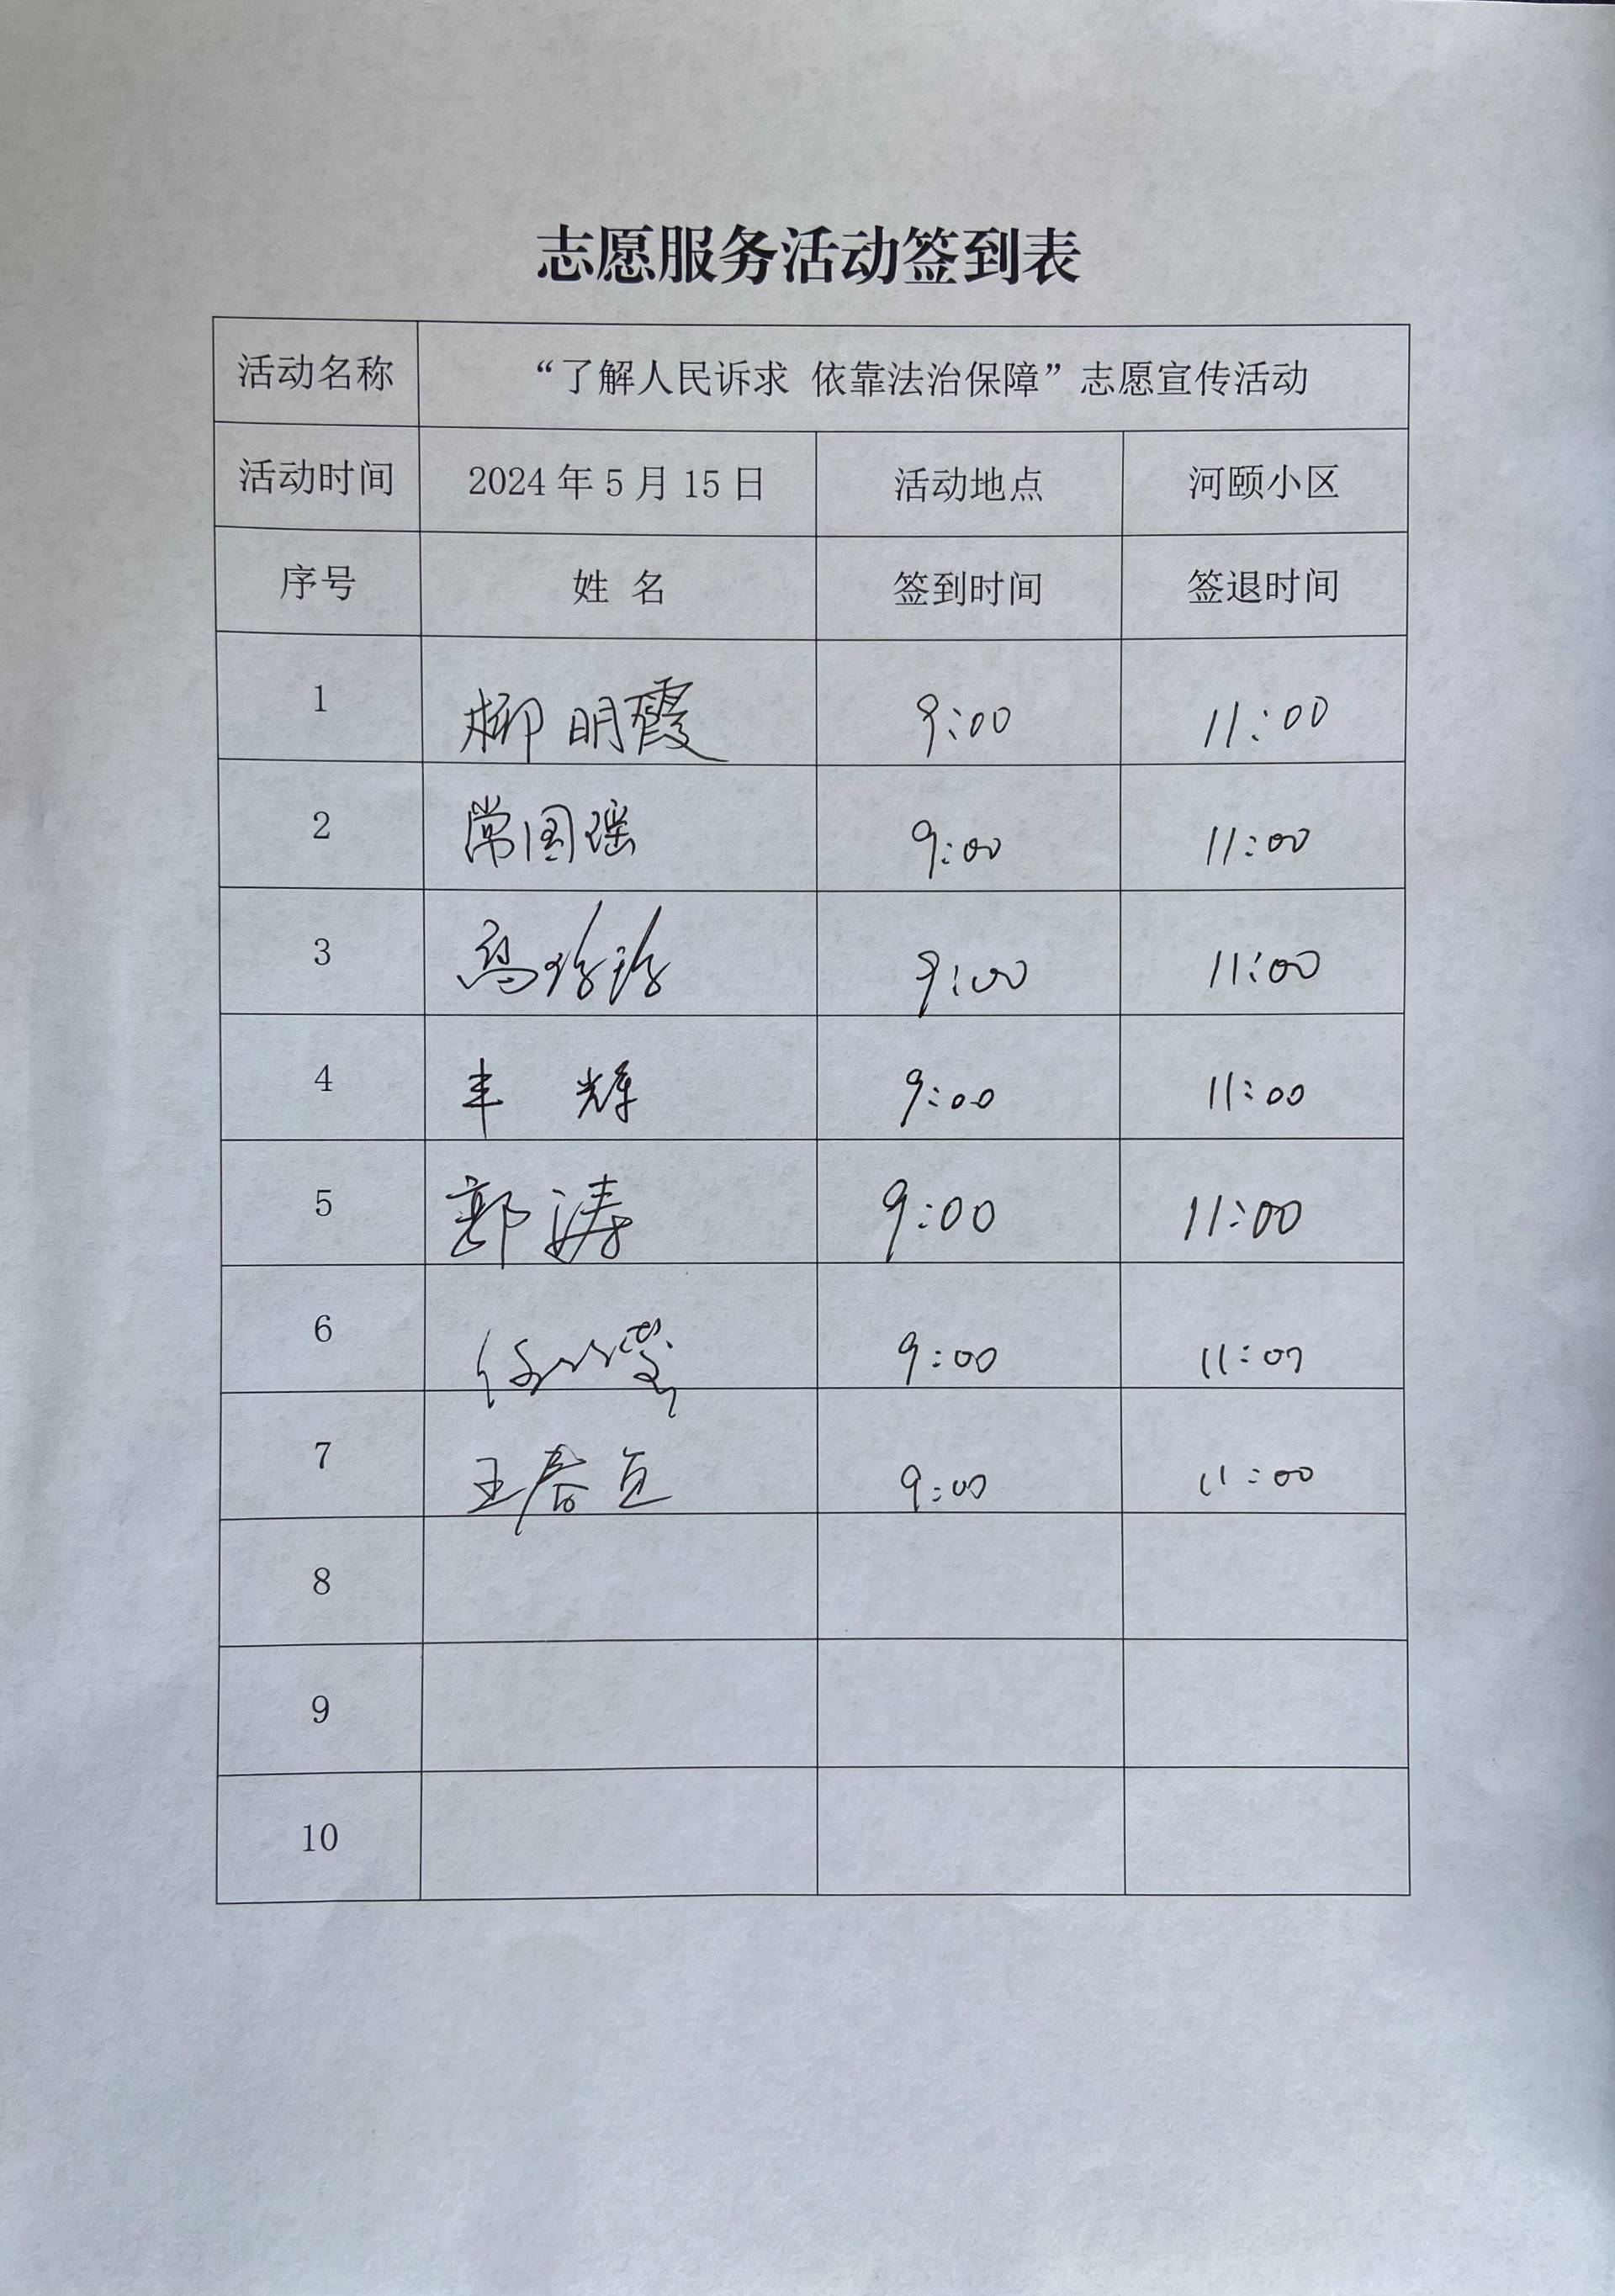 志愿服务活动签到表
活动名称 “了解人民诉求 依靠法治保障”志愿宣传活动
活动时间 2024年5月15日 活动地点 河颐小区
序号 姓 名 签到时间 签退时间
1 柳明霞 9:00 11:00
2 常国瑶 9:00 11:00
3 高珍珍 9:00 11:00
4 丰 辉 9:00 11:00
5 郭涛 9:00 11:00
6 9:00 11:00
7 王春 9:00 11:00
8
9
10